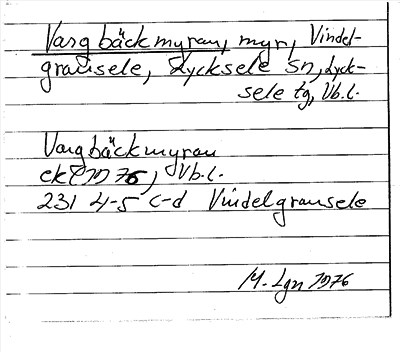 Vargbäckmyran, myr, Vindel-
gransele, Lycksele sn, Lyck-
sele tg, Vb.l.
Vargbäckmyran
ek(1976), Vb.l.
231 4-5 c-d Vindelgransele
M. Lgn 1976